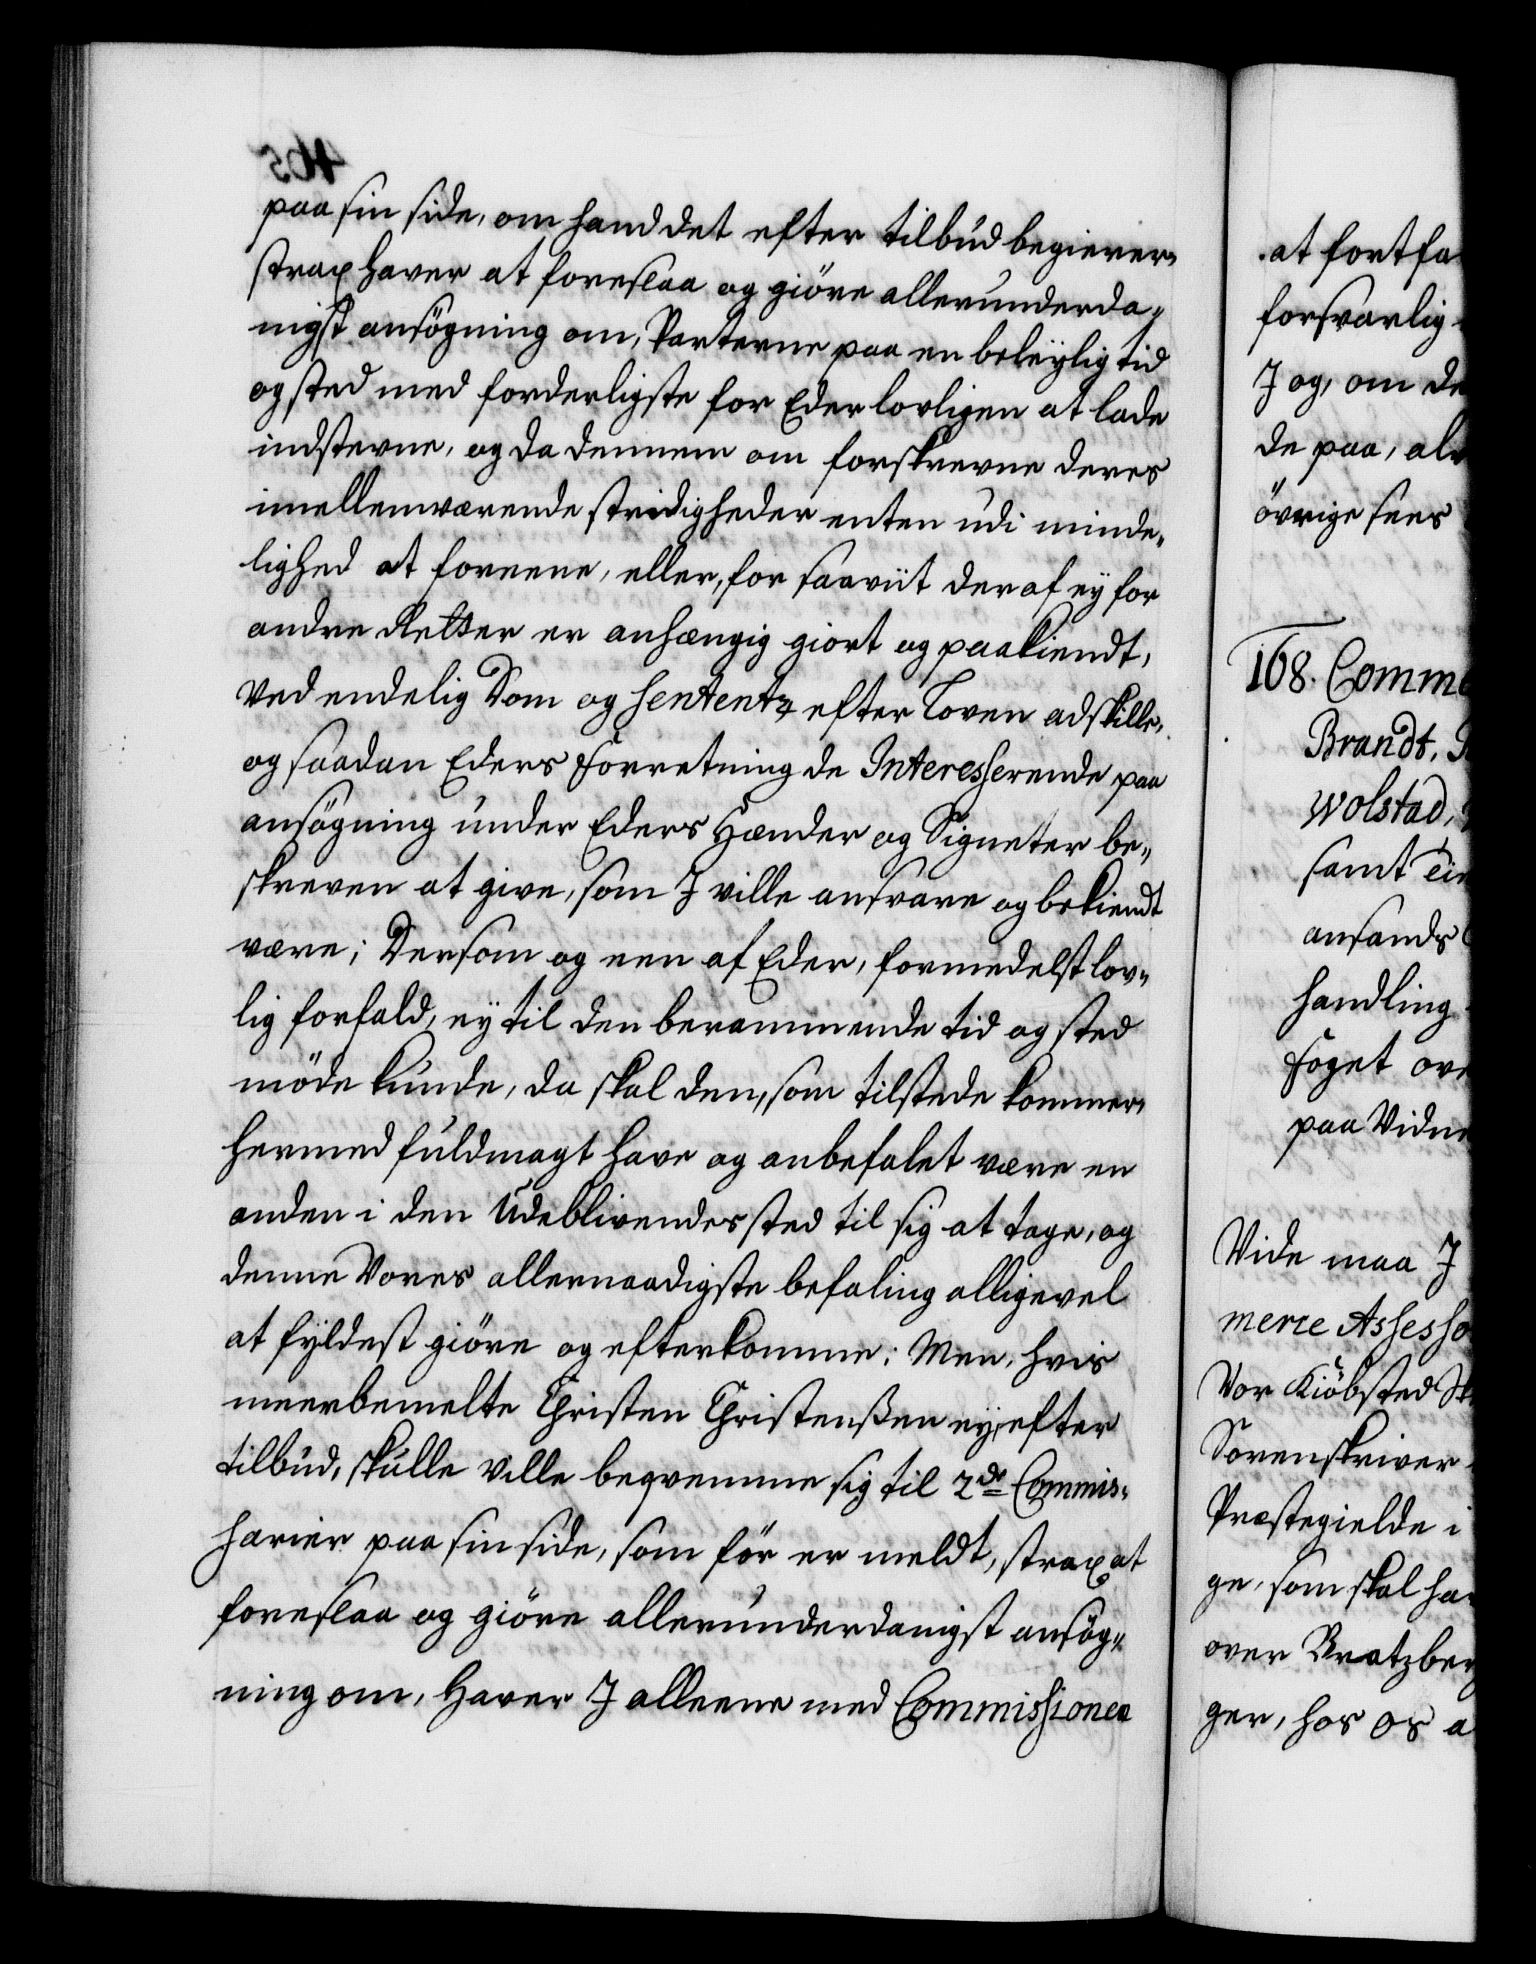 paa sin side, om hand det efter tilbud begierer,
strax haver at foreslaa og giöre allerunderda-
nigst ansögning om, Parterne paa en beleÿlig tid
og sted med forderligste for Eder lovligen at lade
indstevne, og da dennem om forskrevne deres
imellemværende stridigheder enten udi minde-
lighed at foreene, eller, for saaviit deraf eÿ for
andre Retter er anhængig giort og paakiendt,
ved endelig Dom og Sententz efter Loven adskille,
og saadan Eders Forretning de Interesserende paa
ansögning under Eders Hænder og Signeter be-
skreven at give, som J ville ansvare og bekiendt
være; Dersom og een af Eder, formedelst lov-
lig forfald, eÿ til den berammende tid og sted
möde kunde, da skal den, som tilstede kommer,
hermed fuldmagt have og anbefalet være en
anden i den Udeblivendes sted til sig at tage, og
denne Vores allernaadigste befaling alligevel
at fÿldest giöre og efterkomme; Men, hvis
meerbemelte Christen Christenßen eÿ, efter
tilbud, skulle ville beqvemme sig til 2de Commis-
sarier paa sin side, som för er meldt, strax at
foreslaa og giöre allerunderdanigst ansög-
ning om, Haver J alleene med Commissionen
at fortfa
forsvarlig
J og, om de
de paa, al
övrige sees
168. Comme
Brandt,
Wolstad,
samt Ei
ansands
handling
Foget ove
paa Vidne
Vide maa J
merce Assesso
Vor Kiöbsted
Sorenskriver
Præstegielde i
ge, som skal ha
over Bratzber
ger, hos os a